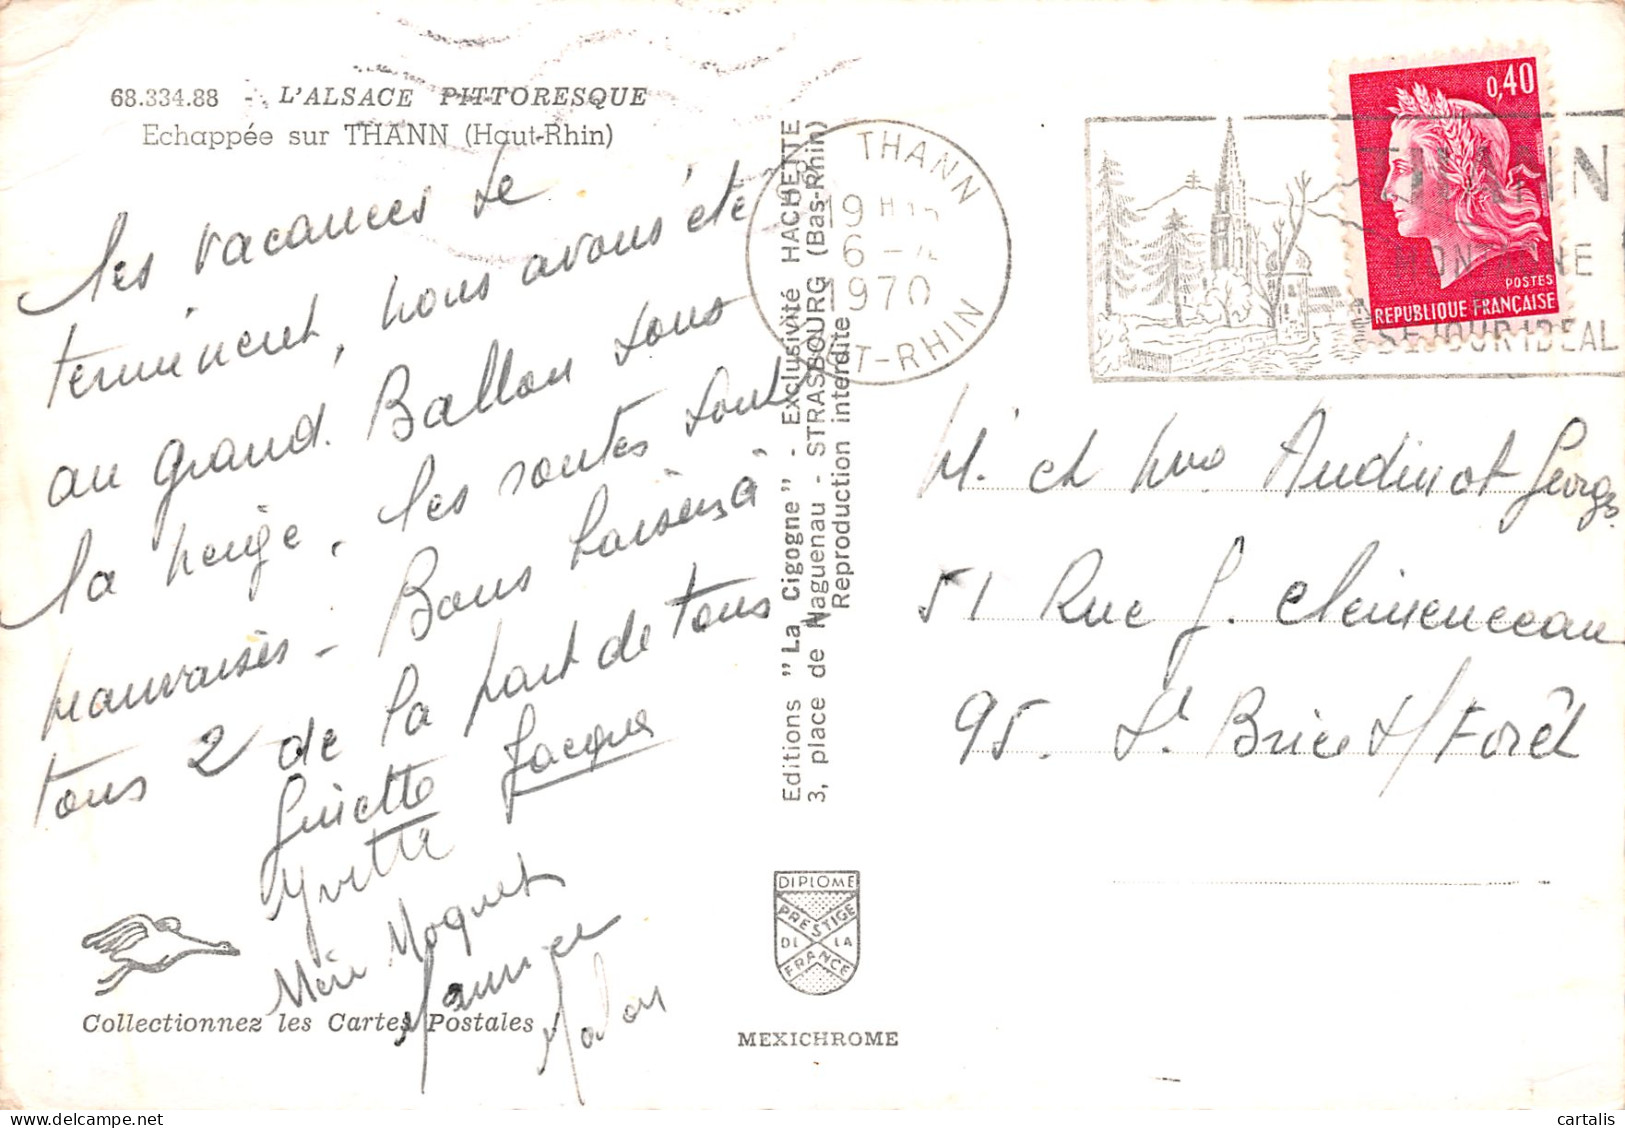 68.334.88 - L'ALSACE PITTORESQUE
Echappée sur THANN (Haut-Rhin)
Les vacances se
terminent, nous avons été
au grand Ballon sous
la neige, les routes sont
mauvaises - Bons baisers à
tous 2 de la part de tous
Ginette Jacques
Yvette
Mère Moquet
Maurice
Collectionnez les Cartes Postales !
Editions "La Cigogne" - Exclusivité HACHETTE
3, place de Haguenau - STRASBOURG (Bas-Rhin)
Reproduction interdite
DIPLOME
PRESTIGE
DE LA
FRANCE
MEXICHROME
THANN
19 H
6 - 4
1970
HAUT-RHIN
0,40
POSTES
REPUBLIQUE FRANÇAISE
THANN
MONTAGNE
SEJOUR IDEAL
M. et Mme Audinot Georges
51 Rue G. Clemenceau
95. St Brice s/Forêt
cartalis